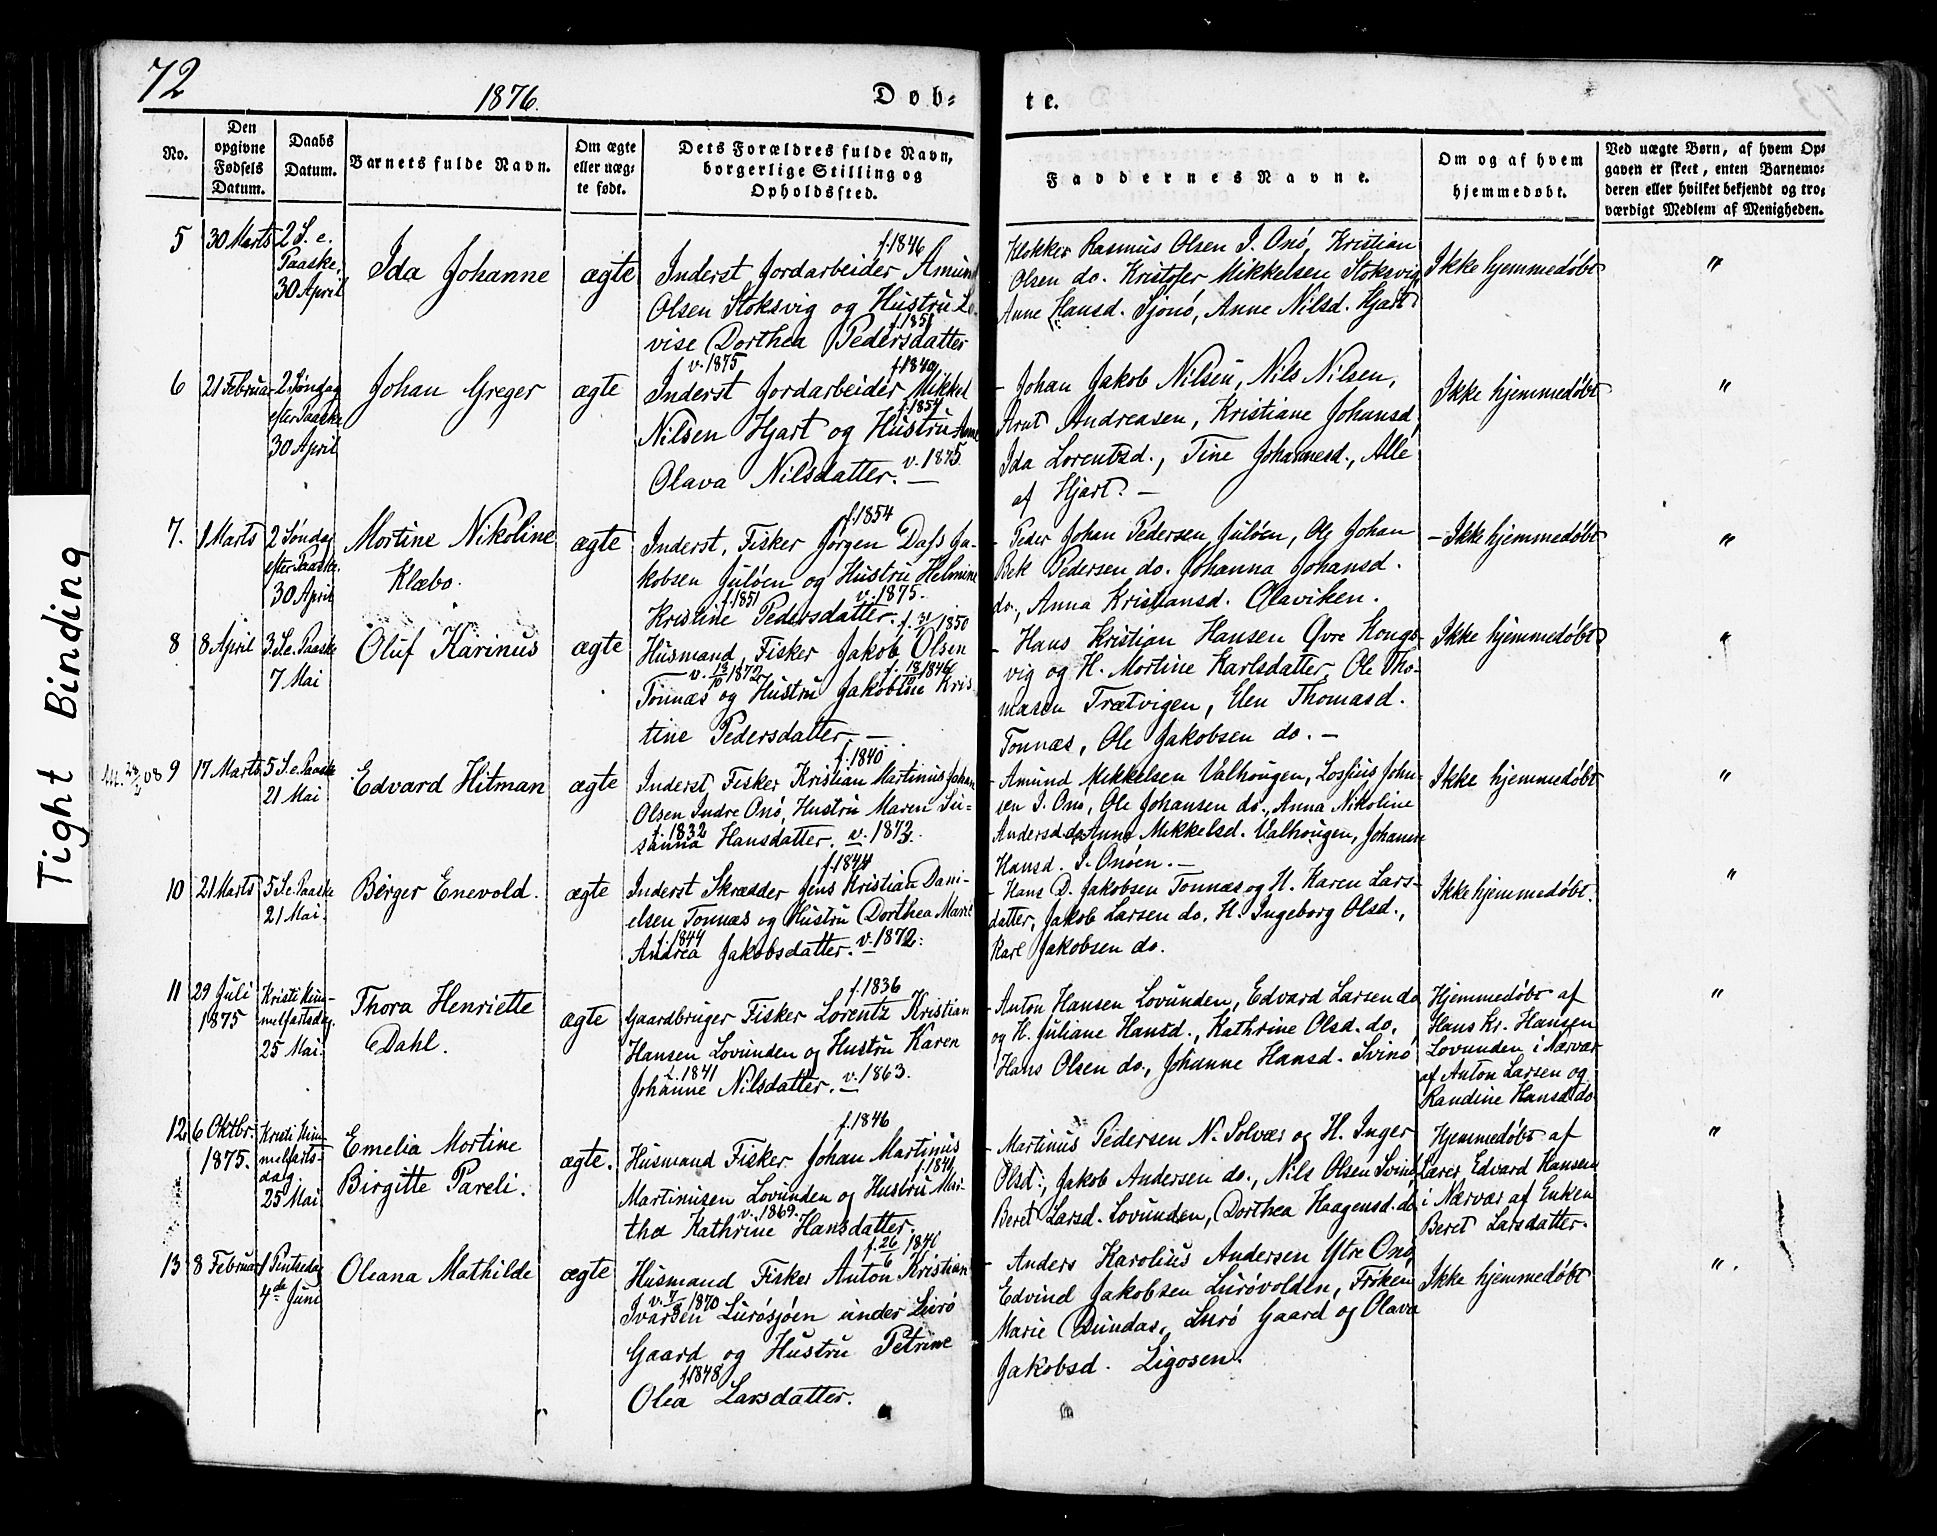 72
1876.
Døb-
te.
No.
Den opgivne Fødsels Datum.
Daabs Datum.
Barnets fulde Navn.
Om ægte eller uæg-te født.
Dets Forældres fulde Navn, borgerlige Stilling og Opholdssted.
Faddernes Navne.
Om og af hvem hjemmedøbt.
Ved uægte Børn, af hvem Op-gaven er skeet, enten Barnemo-deren eller hvilket bekjendt og tro-værdigt Medlem af Menigheden.
5
30 Marts
2 S. e.
Paaske,
30 April
Ida Johanne
ægte
f. 1846
Inderst Jordarbeider Amund
Olsen Stoksvig og Hustru Lo-
f. 1851
vise Dorthea Pedersdatter
v. 1875
Klokker Rasmus Olsen I. Onø, Kristian
Olsen do. Kristofer Mikkelsen Stoksvig,
Anne Hansd. Sjonø, Anne Nilsd. Hjart
Ikke hjemmedøbt
"
6
21 Februar
2 Søndag
efter Paaske
30 April
Johan Greger
ægte
Inderst Jordarbeider Mikkel
f. 1854
Nilsen Hjart og Hustru
Olava Nilsdatter. v. 1875.
- Johan Jakob Nilsen, Nils Nilsen,
Arnt Andreasen, Kristiane Johansd,
Ida Lorentzd., Tine Johannesd., Alle
af Hjart. -
Ikke hjemmedøbt
"
7.
1 Marts
2 Søndag
efter Paaske.
30 April
Mortine Nikoline
Klæbo.
ægte
f. 1854
Inderst, Fisker Jørgen Dass Ja-
kobsen Juløen og Hustru Helmine
f. 1851 v. 1875.
Kristine Pedersdatter.
- Peder Johan Pedersen Juløen, Ole Johan
Bek Pedersen do. Johanna Johansd.
do., Anna Kristiansd. Olaviken.
- Ikke hjemmedøbt
"
8
8 April
3. S. e. Paaske
7 Mai
Oluf Karinus
ægte
1850
Husmand, Fisker Jakob Olsen
Tonnæs og Hustru Jakobine Kris-
tine Pedersdatter. -
- Hans Kristian Hansen Øvre Kongs-
vig og H. Mortine Karlsdatter, Ole Tho-
masen Trætvigen, Elen Thomasd.
Tonnæs, Ole Jakobsen do. -
Ikke hjemmedøbt
"
9
17 Marts
5 S. e. Paaske
21 Mai
Edvard Hitman
ægte
f. 1840
Inderst, Fisker Kristian Martinus Johan
Olsen Indre Onø, Hustru Maren Su-
f. 1832
sanna Hansdatter. v. 1873.
- Amund Mikkelsen Valhougen, Lossius John-
sen I. Onø, Ole Johansen do., Anna Nikoline
Andersd. do. Anne Mikkelsd. Valhougen, Johanne
Hansd. I. Onøen. -
Ikke hjemmedøbt
"
10
21 Marts
5 S. e. Paaske
21 Mai.
Birger Enevold.
ægte
f. 1844
Inderst Skrædder Jens Kristian Dani-
elsen Tonnæs og Hustru Dorthea Marie
f. 1844
Andrea Jakobsdatter. v. 1872.
- Hans D. Jakobsen Tonnæs og H. Karen Lars-
datter, Jakob Larsen do, H. Ingeborg Olsd.,
Karl Jakobsen do.
Ikke hjemmedøbt.
"
11
29 Juli
1875
Kristi Him-
melfartsdag.
25 Mai.
Thora Henriette
Dahl.
ægte
f. 1836
Gaardbruger Fisker Lorentz Kristian
Hansen Lovunden og Hustru Karen
f. 1841
Johanne Nilsdatter. v. 1863.
- Anton Hansen Lovunden, Edvard Larsen do
og H. Juliane Hansd., Kathrine Olsd. do.
Hans Olsen do., Johanne Hansd. Svinø
Hjemmedøbt af
Hans Kr. Hansen
Lovunden i Nærvær
af Anton Larsen og
Randine Hansd do
"
12
6 Oktbr.
1875.
Kristi Him-
melfarts-
dag
25 Mai
Emelia Mortine
Birgitte Pareli.
ægte.
f. 1846
Husmand Fisker Johan Martinus
Martinusen Lovunden og Hustru Mar-
v. 1869.
tha Kathrine Hansdatter.
- Martinus Pedersen N. Solvær og H. Inger
Olsd., Jakob Andersen do., Nils Olsen Svinø,
Beret Larsd. Lovunden, Dorthea Haagensd. do.
Hjemmedøbt af
Lærer Edvard Hansen
i Nærvær af Enken
Beret Larsdatter.
"
13
8 Februar
1 Pintsedag
4de Juni
Oleana Mathilde
ægte
f. 26/6 1846
Husmand Fisker Anton Kristian
v. 7/8 1870
Ivarsen Lurøsjøen under Lurø
Gaard og Hustru Petrine
f. 1848
Olea Larsdatter.
- Anders Karolius Andersen Ytre Onø,
Edvind Jakobsen Lurøvolden, Frøken
Marie Dundas, Lurø Gaard og Olava
Jakobsd. Ligosen.
Ikke hjemmedøbt
".
Tight Binding